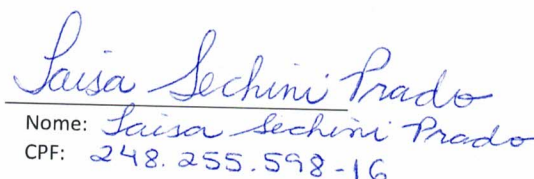 Laisa Sechini Prado
Nome: Laisa Sechini Prado
CPF: 248.255.598-16